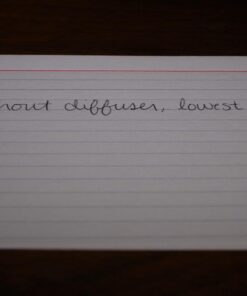 hout diffuser, lowest